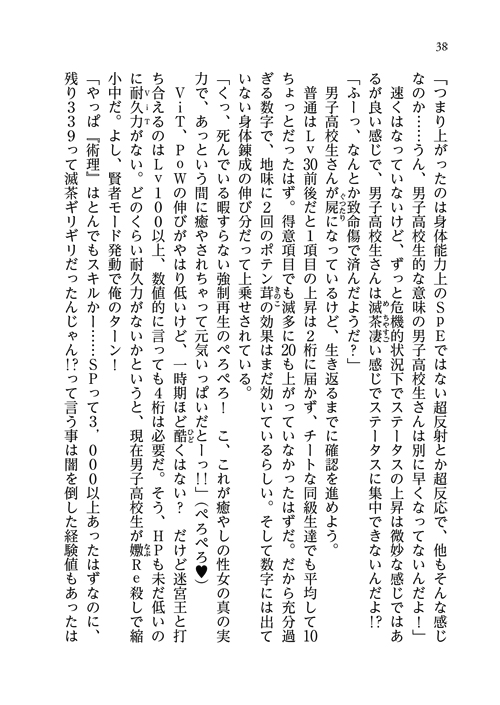 38
「つまり上がったのは身体能力上のSpEではない超反射とか超反応で、他もそんな感じ
なのか……うん、男子高校生的な意味の男子高校生さんは別に早くなってないんだよ！」
速くはなっていないけど、ずっと危機的状況下でステータスの上昇は微妙な感じではあ
るが良い感じで、男子高校生さんは滅茶凄い感じでステータスに集中できないんだよ!?
「ふーっ、なんとか致命傷で済んだようだ？」
男子高校生さんが屍になっているけど、生き返るまでに確認を進めよう。
普通はLv30前後だと1項目の上昇は2桁に届かず、チートな同級生達でも平均して10
ちょっとだったはず。得意項目でも滅多に20も上がっていなかったはずだ。だから充分過
ぎる数字で、地味に2回のポテン茸の効果はまだ効いているらしい。そして数字には出て
いない身体錬成の伸び分だって上乗せされている。
「くっ、死んでいる暇すらない強制再生のぺろぺろ！　こ、これが癒やしの性女の真の実
力で、あっという間に癒やされちゃって元気いっぱいだとーっ!!」（ぺろぺろ♥）
ViT、PoWの伸びがやはり低いけど、一時期ほど酷くはない？　だけど迷宮王と打
ち合えるのはLv100以上、数値的に言っても4桁は必要だ。そう、HPも未だ低いの
に耐久力がない。どのくらい耐久力がないかというと、現在男子高校生が嫐Re殺しで縮
小中だ。よし、賢者モード発動で俺のターン！
「やっぱ『術理』はとんでもスキルかー……SPって3，000以上あったはずなのに、
残り339って滅茶ギリギリだったんじゃん!?って言う事は闇を倒した経験値もあったは